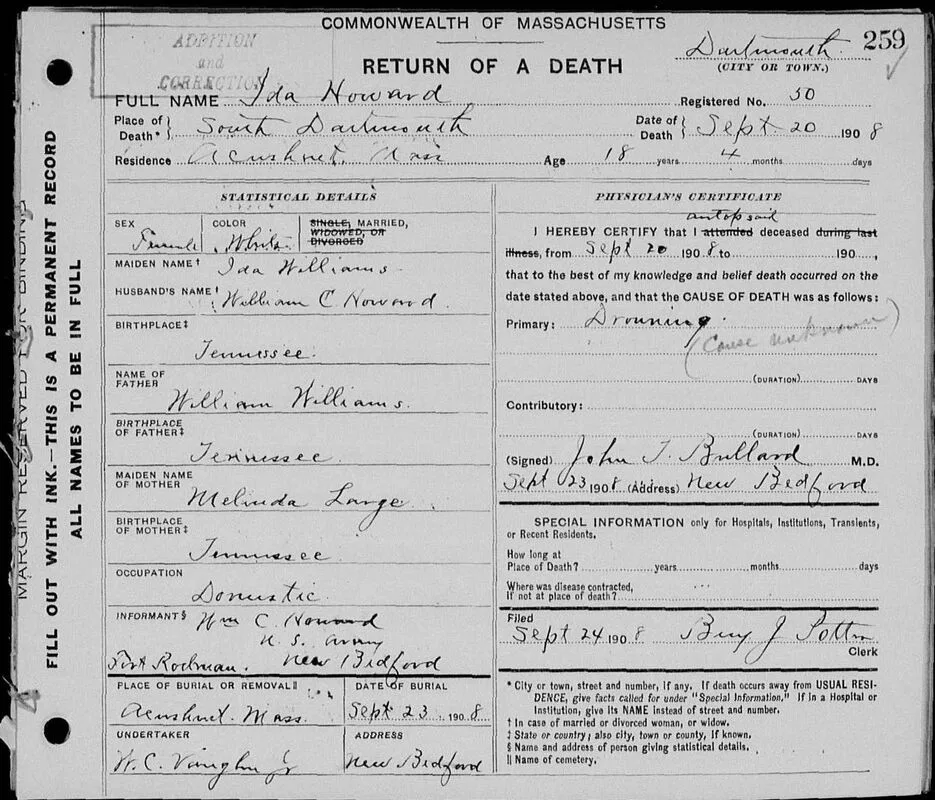 COMMONWEALTH OF MASSACHUSETTS
ADDITION
and
CORRECTION
RETURN OF A DEATH
Dartmouth. 259
(CITY OR TOWN.)
FULL NAME Ida Howard
Registered No. 50
Place of Death* } South Dartmouth
Date of Death } Sept 20 1908
Residence Acushnet. Mass
Age 18 years 4 months days
MARGIN RESERVED FOR BINDING
FILL OUT WITH INK.—THIS IS A PERMANENT RECORD
ALL NAMES TO BE IN FULL
STATISTICAL DETAILS
SEX
Female
COLOR
White
SINGLE, MARRIED,
WIDOWED, OR
DIVORCED
MAIDEN NAME†
Ida Williams.
HUSBAND'S NAME†
William C. Howard.
BIRTHPLACE‡
Tennessee.
NAME OF
FATHER
William Williams.
BIRTHPLACE
OF FATHER‡
Tennessee.
MAIDEN NAME
OF MOTHER
Melinda Large
BIRTHPLACE
OF MOTHER‡
Tennessee
OCCUPATION
Domestic.
INFORMANT§ Wm C. Howard
U. S. Army
Fort Rodman. New Bedford
PLACE OF BURIAL OR REMOVAL||
Acushnet. Mass.
DATE OF BURIAL
Sept 23 1908
UNDERTAKER
W. C. Vaughn Jr
ADDRESS
New Bedford
PHYSICIAN'S CERTIFICATE
autopsied
I HEREBY CERTIFY that I attended deceased during last
illness, from Sept 20 1908 to 190 ,
that to the best of my knowledge and belief death occurred on the
date stated above, and that the CAUSE OF DEATH was as follows:
Primary: Drowning.
(Cause unknown)
(DURATION) DAYS
Contributory:
(DURATION) DAYS
(Signed) John T. Bullard M.D.
Sept 23 1908 (Address) New Bedford
SPECIAL INFORMATION only for Hospitals, Institutions, Transients,
or Recent Residents.
How long at
Place of Death? years months days
Where was disease contracted,
If not at place of death?
Filed
Sept 24 1908 Benj J Potter
Clerk
* City or town, street and number, if any. If death occurs away from USUAL RESI-
DENCE, give facts called for under "Special Information." If in a Hospital or
Institution, give its NAME instead of street and number.
† In case of married or divorced woman, or widow.
‡ State or country; also city, town or county, if known.
§ Name and address of person giving statistical details.
|| Name of cemetery.